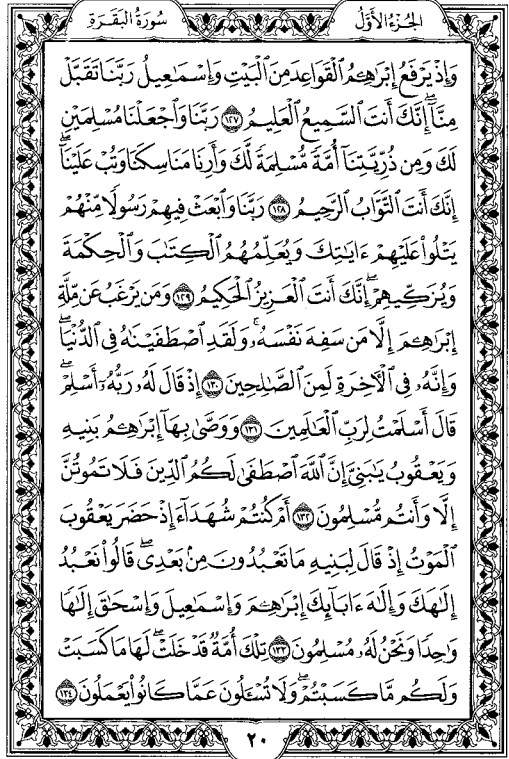 سُورَةُ البَقَرَةِ الجُزْءُ الأَوَّلُ
وَإِذْ يَرْفَعُ إِبْرَٰهِـۧمُ ٱلْقَوَاعِدَ مِنَ ٱلْبَيْتِ وَإِسْمَٰعِيلُ رَبَّنَا تَقَبَّلْ
مِنَّآۖ إِنَّكَ أَنتَ ٱلسَّمِيعُ ٱلْعَلِيمُ ١٢٧ رَبَّنَا وَٱجْعَلْنَا مُسْلِمَيْنِ
لَكَ وَمِن ذُرِّيَّتِنَآ أُمَّةً مُّسْلِمَةً لَّكَ وَأَرِنَا مَنَاسِكَنَا وَتُبْ عَلَيْنَآۖ
إِنَّكَ أَنتَ ٱلتَّوَّابُ ٱلرَّحِيمُ ١٢٨ رَبَّنَا وَٱبْعَثْ فِيهِمْ رَسُولًا مِّنْهُمْ
يَتْلُوا۟ عَلَيْهِمْ ءَايَٰتِكَ وَيُعَلِّمُهُمُ ٱلْكِتَٰبَ وَٱلْحِكْمَةَ
وَيُزَكِّيهِمْۚ إِنَّكَ أَنتَ ٱلْعَزِيزُ ٱلْحَكِيمُ ١٢٩ وَمَن يَرْغَبُ عَن مِّلَّةِ
إِبْرَٰهِـۧمَ إِلَّا مَن سَفِهَ نَفْسَهُۥۚ وَلَقَدِ ٱصْطَفَيْنَٰهُ فِى ٱلدُّنْيَاۖ
وَإِنَّهُۥ فِى ٱلْـَٔاخِرَةِ لَمِنَ ٱلصَّٰلِحِينَ ١٣٠ إِذْ قَالَ لَهُۥ رَبُّهُۥٓ أَسْلِمْۖ
قَالَ أَسْلَمْتُ لِرَبِّ ٱلْعَٰلَمِينَ ١٣١ وَوَصَّىٰ بِهَآ إِبْرَٰهِـۧمُ بَنِيهِ
وَيَعْقُوبُ يَٰبَنِىَّ إِنَّ ٱللَّهَ ٱصْطَفَىٰ لَكُمُ ٱلدِّينَ فَلَا تَمُوتُنَّ
إِلَّا وَأَنتُم مُّسْلِمُونَ ١٣٢ أَمْ كُنتُمْ شُهَدَآءَ إِذْ حَضَرَ يَعْقُوبَ
ٱلْمَوْتُ إِذْ قَالَ لِبَنِيهِ مَا تَعْبُدُونَ مِنۢ بَعْدِىۖ قَالُوا۟ نَعْبُدُ
إِلَٰهَكَ وَإِلَٰهَ ءَابَآئِكَ إِبْرَٰهِـۧمَ وَإِسْمَٰعِيلَ وَإِسْحَٰقَ إِلَٰهًا
وَٰحِدًا وَنَحْنُ لَهُۥ مُسْلِمُونَ ١٣٣ تِلْكَ أُمَّةٌ قَدْ خَلَتْۖ لَهَا مَا كَسَبَتْ
وَلَكُم مَّا كَسَبْتُمْۖ وَلَا تُسْـَٔلُونَ عَمَّا كَانُوا۟ يَعْمَلُونَ ١٣٤
٢٠